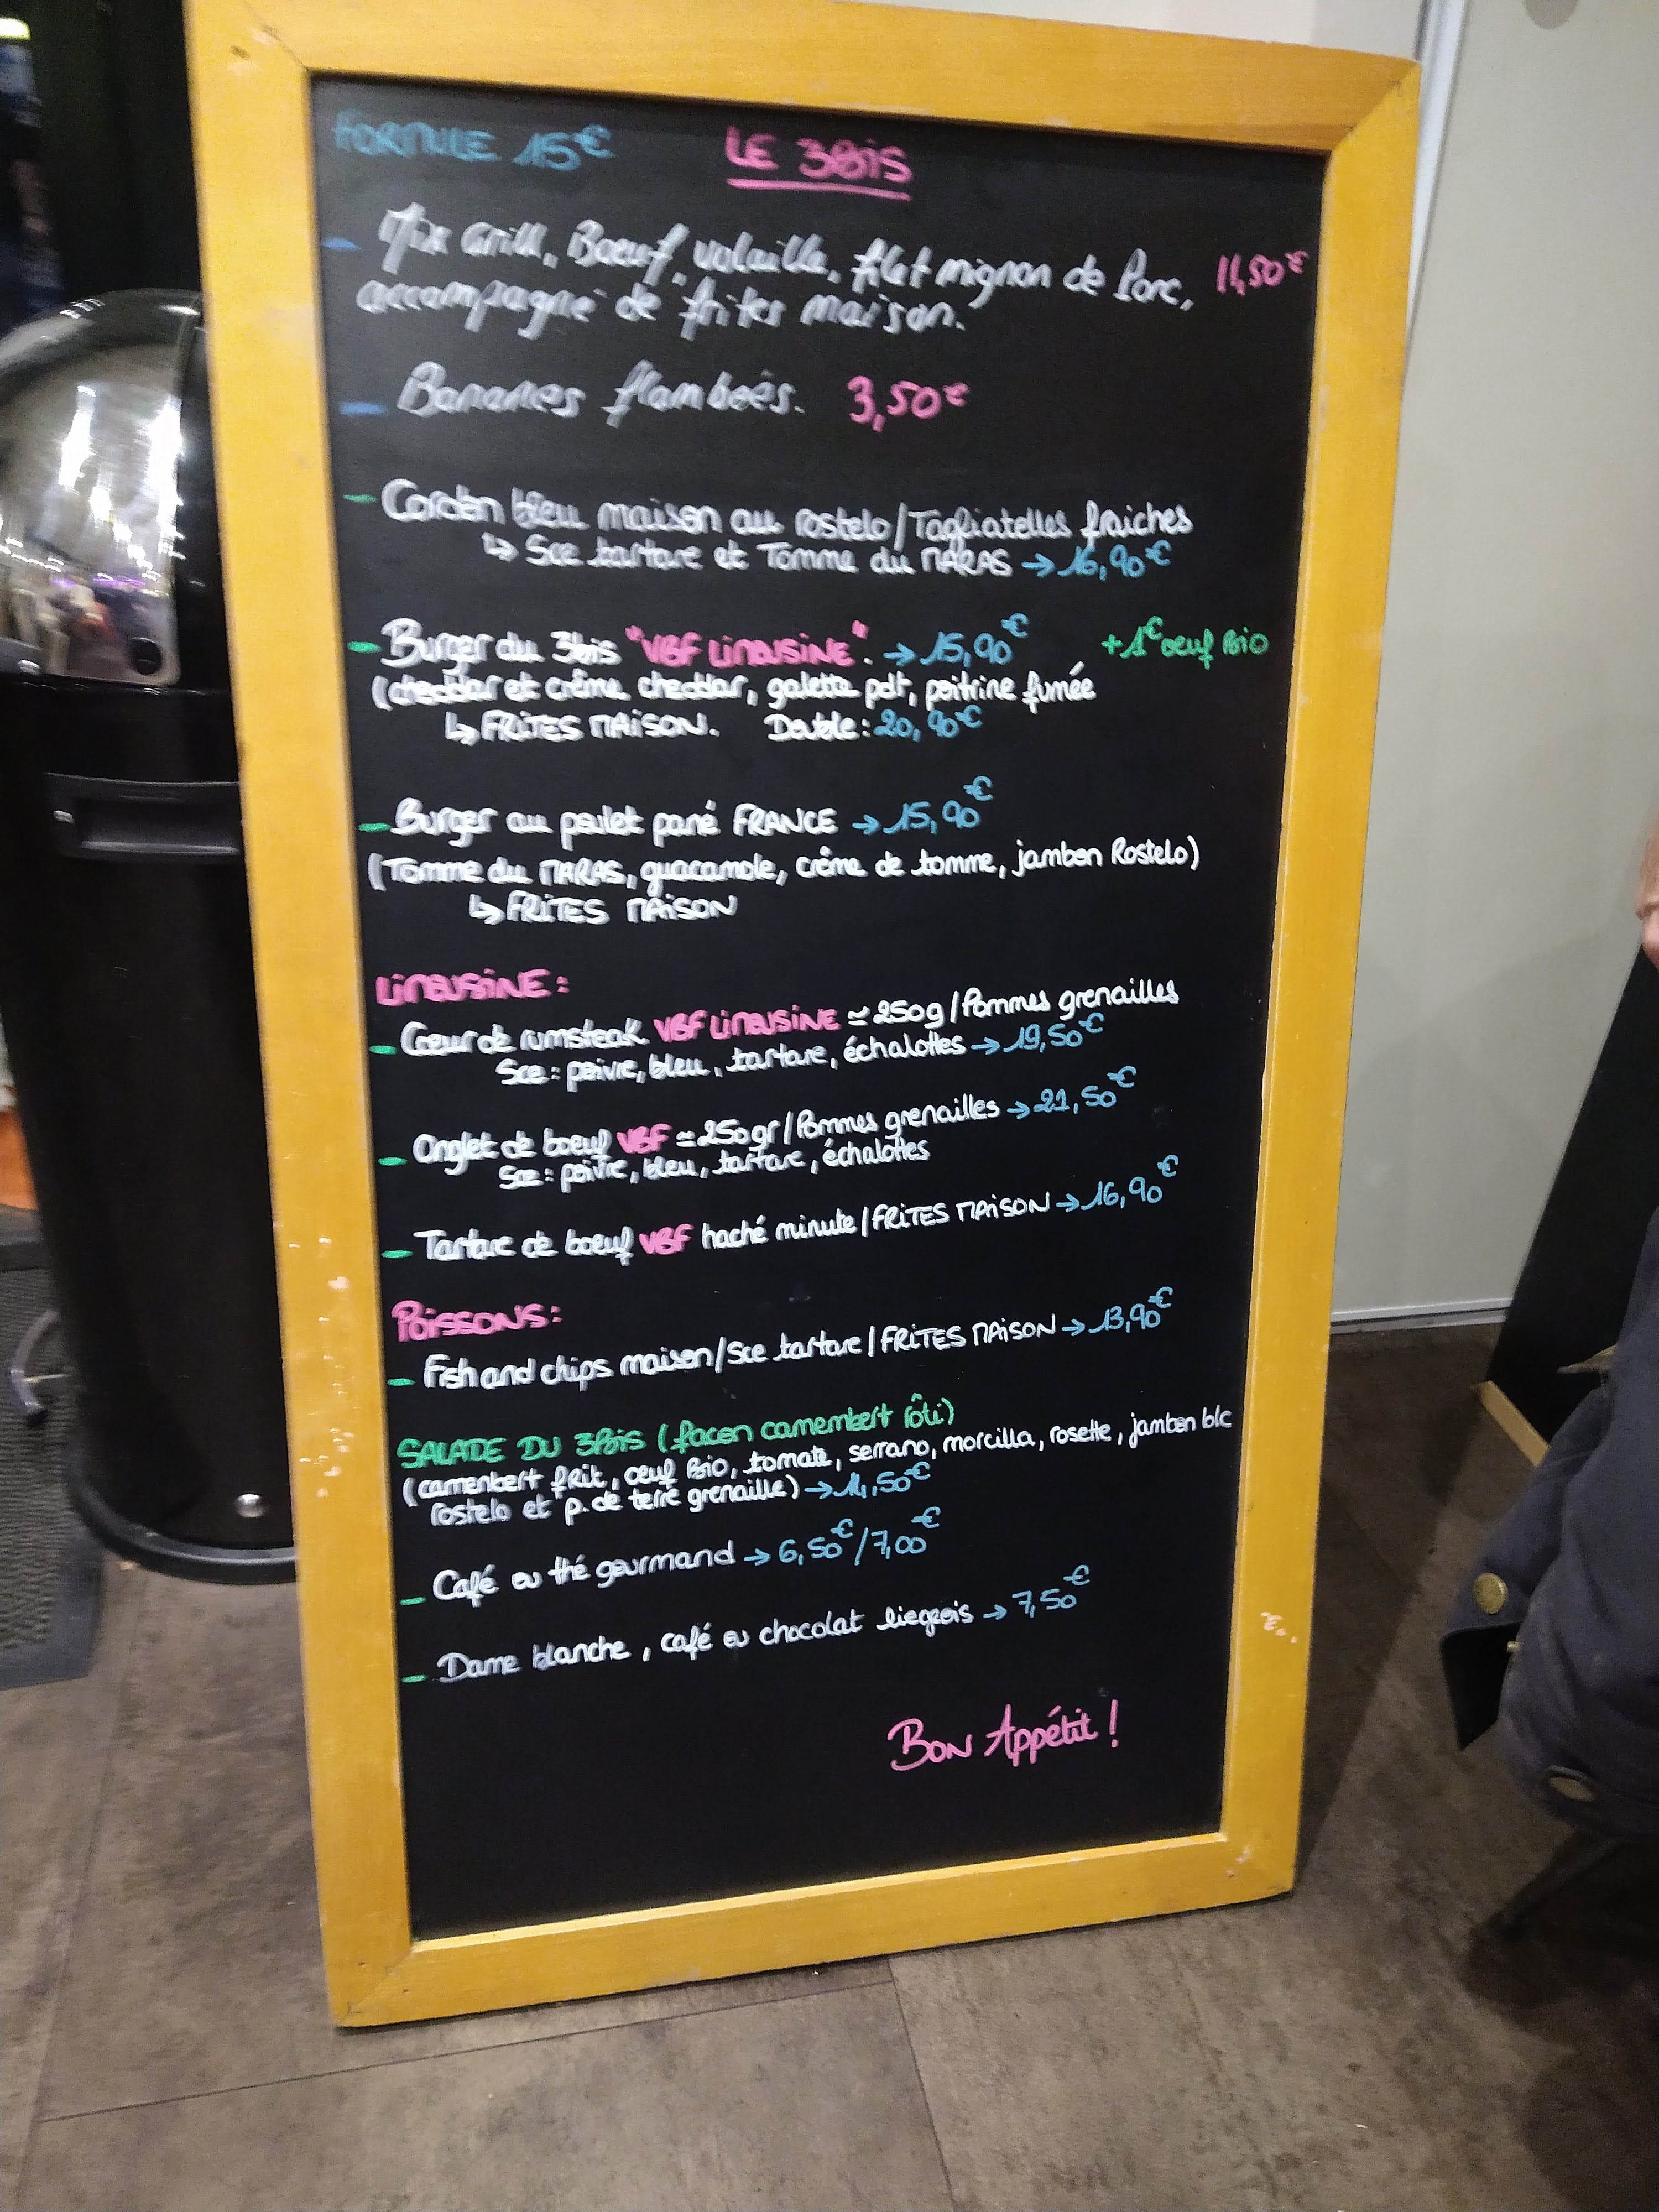 FORMULE 15€
LE 3BIS
- Mix Grill, Boeuf, volaille, filet mignon de Porc, 11,50€
accompagné de frites maison.
- Bananes flambeés. 3,50€
- Cordon bleu maison au rostelo/Tagliatelles fraiches
↳ Sce tartare et Tomme du MARAS → 16,90€
- Burger du 3bis "VBF LIMOUSINE". → 15,90€ +1€ oeuf Bio
(cheddar et crème cheddar, galette pdt, poitrine fumée
↳ FRITES MAISON. Double: 20,90€
- Burger au poulet pané FRANCE → 15,90€
(Tomme du MARAS, guacamole, crème de tomme, jambon Rostelo)
↳ FRITES MAISON
LIMOUSINE:
- Coeur de rumsteak VBF LIMOUSINE ≃ 250g/Pommes grenailles
Sce: poivre, bleu, tartare, échalottes → 19,50€
- Onglet de boeuf VBF ≃ 250gr/Pommes grenailles → 21,50€
Sce: poivre, bleu, tartare, échalottes
- Tartare de boeuf VBF haché minute/FRITES MAISON → 16,90€
POISSONS:
- Fish and chips maison/Sce tartare/FRITES MAISON → 13,90€
SALADE DU 3BIS (facon camembert rôti)
(camembert frit, oeuf Bio, tomate, serrano, morcilla, rosette, jambon blc
rostelo et p. de terre grenaille) → 14,50€
- Café ou thé gourmand → 6,50€/7,00€
- Dame blanche, café ou chocolat liegeois → 7,50€
BON Appétit !